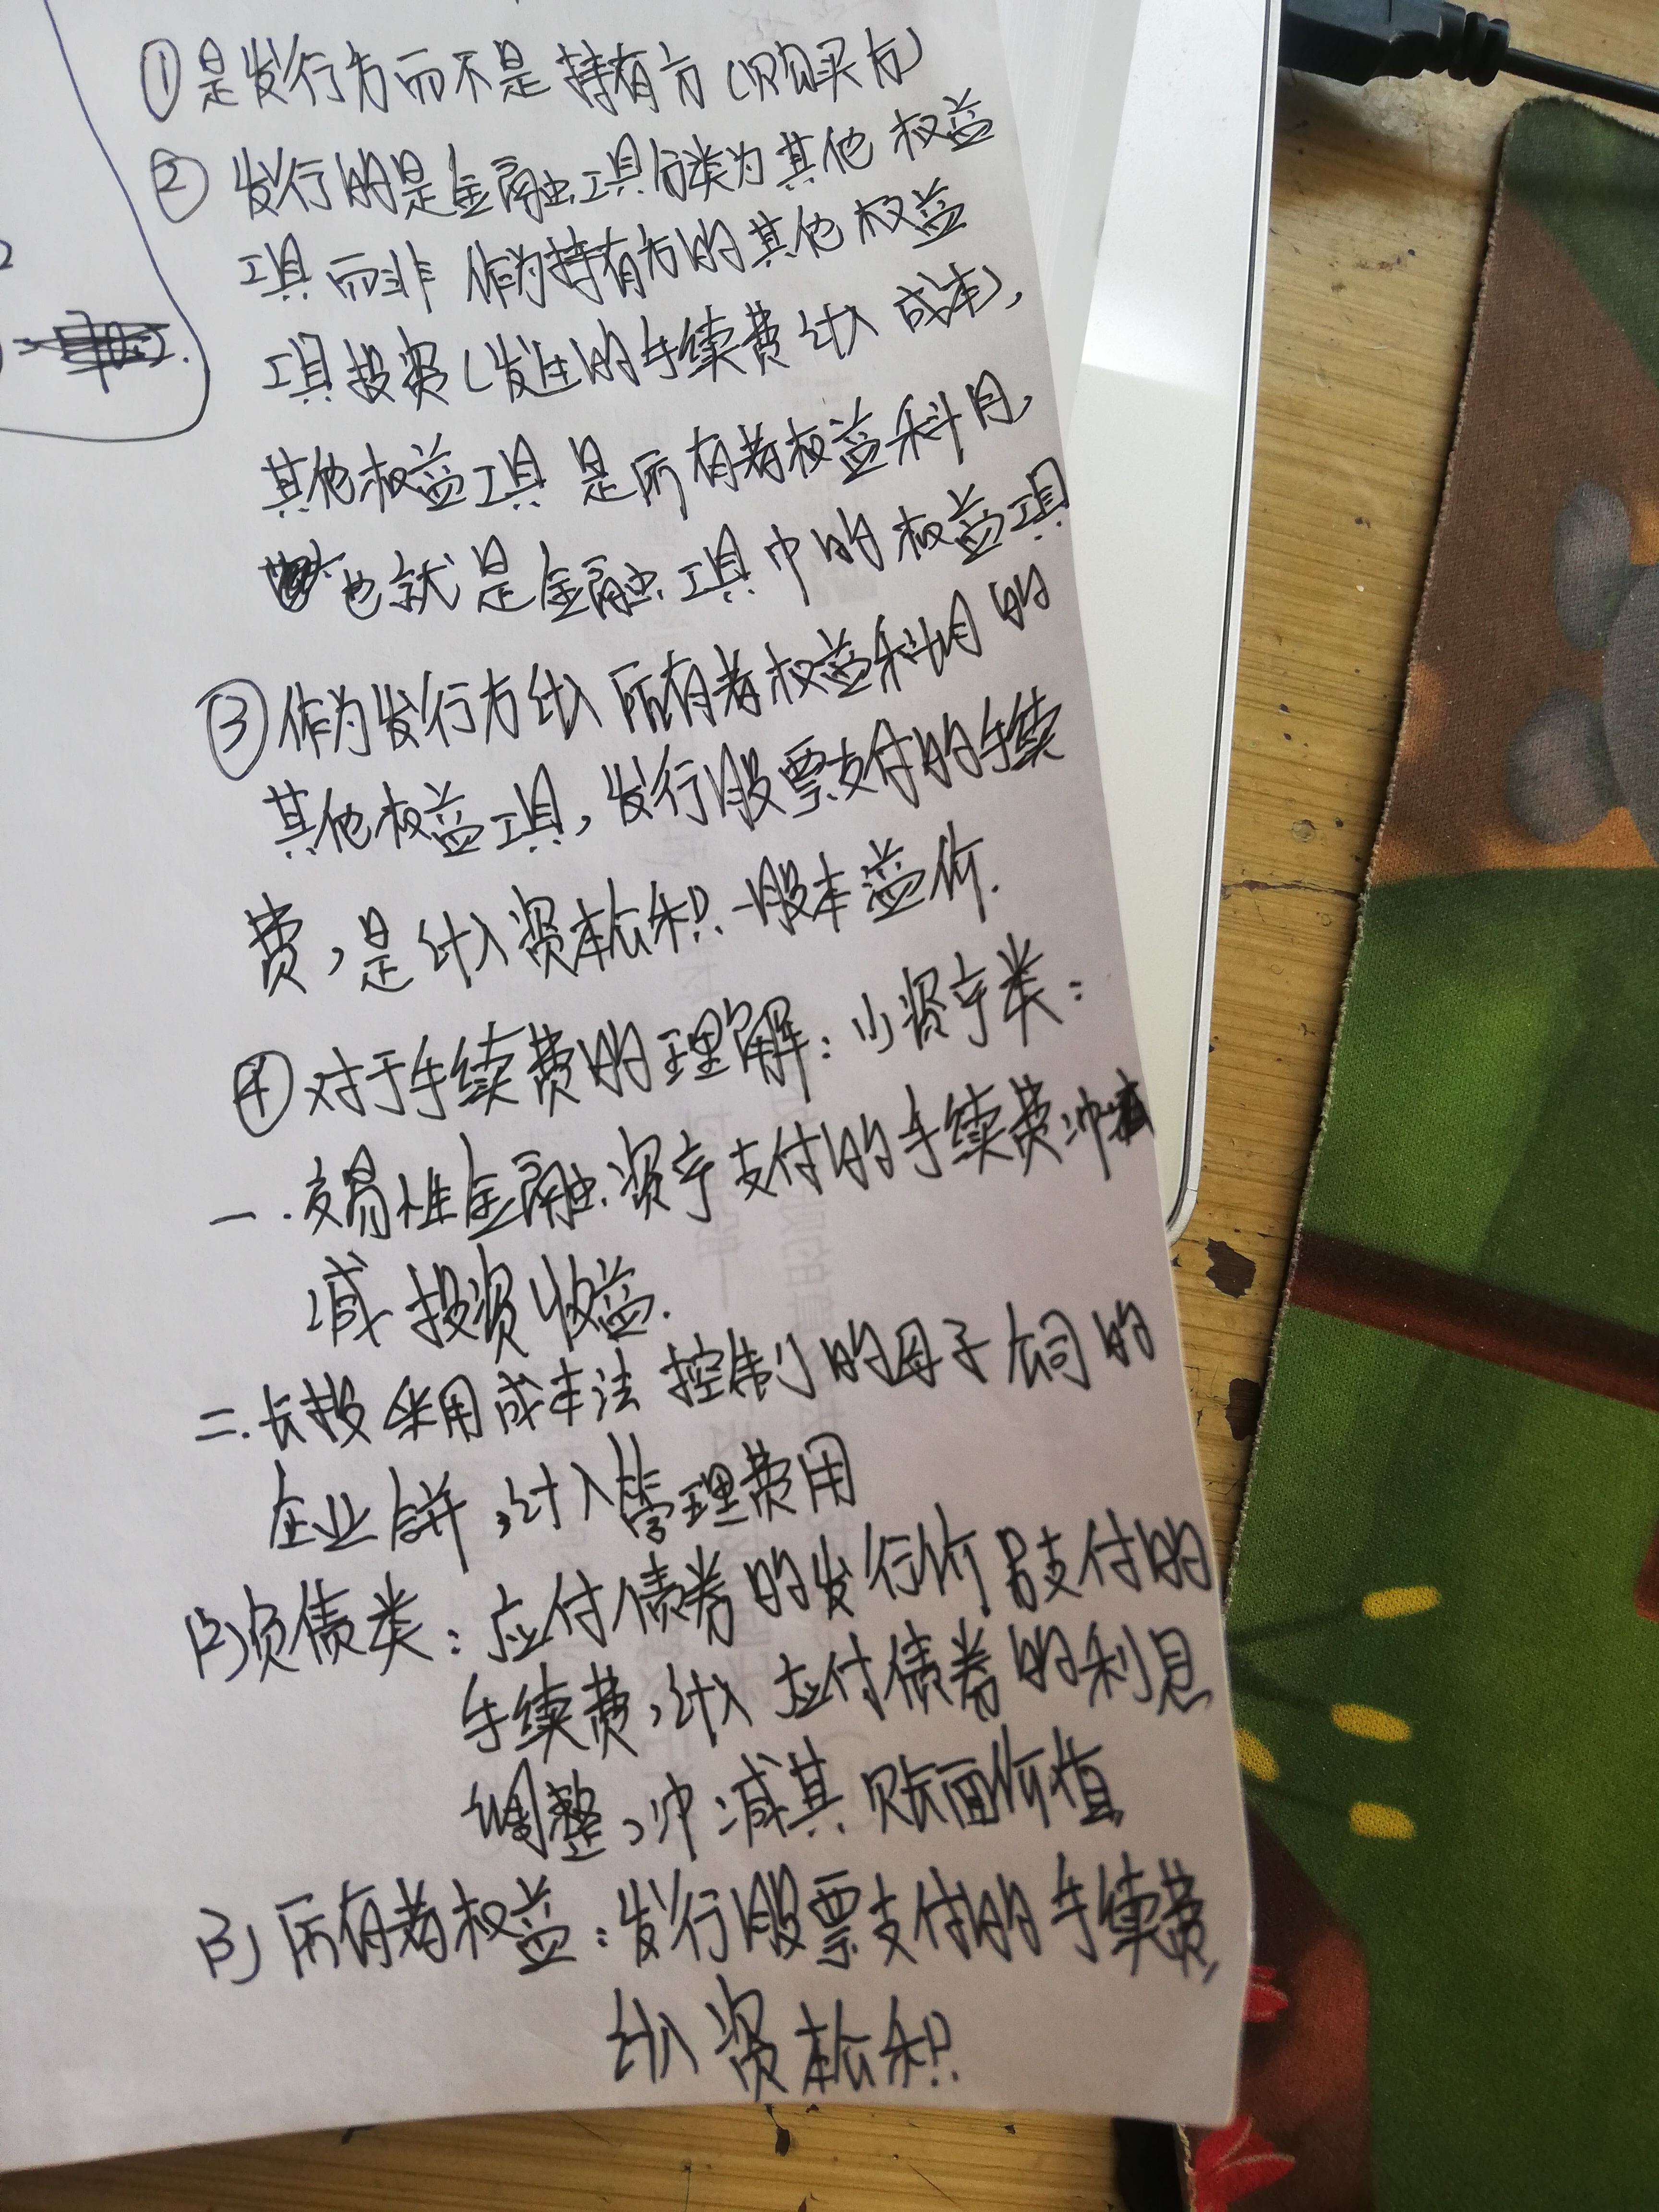 ①是发行方而不是持有方(购买方)
②发行的是金融工具分类为其他权益
工具而非作为持有方的其他权益
工具投资(发生的手续费计入成本),
其他权益工具是所有者权益科目,
也就是金融工具中的权益工具
③作为发行方计入所有者权益科目的
其他权益工具,发行股票支付的手续
费,是计入资本公积—股本溢价.
④对于手续费的理解:(1)资产类:
一.交易性金融资产支付的手续费冲
减投资收益.
二.长投采用成本法控制的母子公司的
企业合并,计入管理费用
(2)负债类:应付债券的发行价 支付的
手续费,计入应付债券的利息
调整,冲减其账面价值
(3)所有者权益:发行股票支付的手续费,
计入资本公积